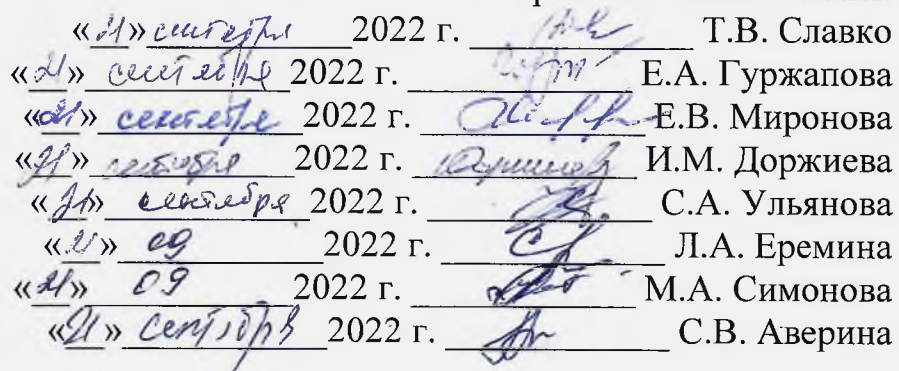 «21» сентября 2022 г. Т.В. Славко
«21» сентября 2022 г. Е.А. Гуржапова
«21» сентября 2022 г. Е.В. Миронова
«21» сентября 2022 г. И.М. Доржиева
«21» сентября 2022 г. С.А. Ульянова
«21» 09 2022 г. Л.А. Еремина
«21» 09 2022 г. М.А. Симонова
«21» сентября 2022 г. С.В. Аверина